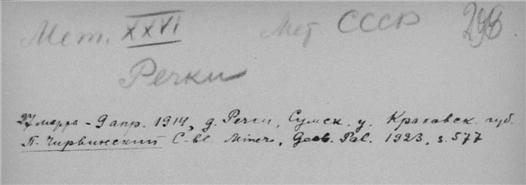 Мет. XXVI Мет СССР 298
Речки
27 марта - 9 апр. 1914, д. Речки, Сумск. у. Харьковск. губ.
П. Чирвинский C-bl. Miner., Geol. Pal. 1923, s. 577